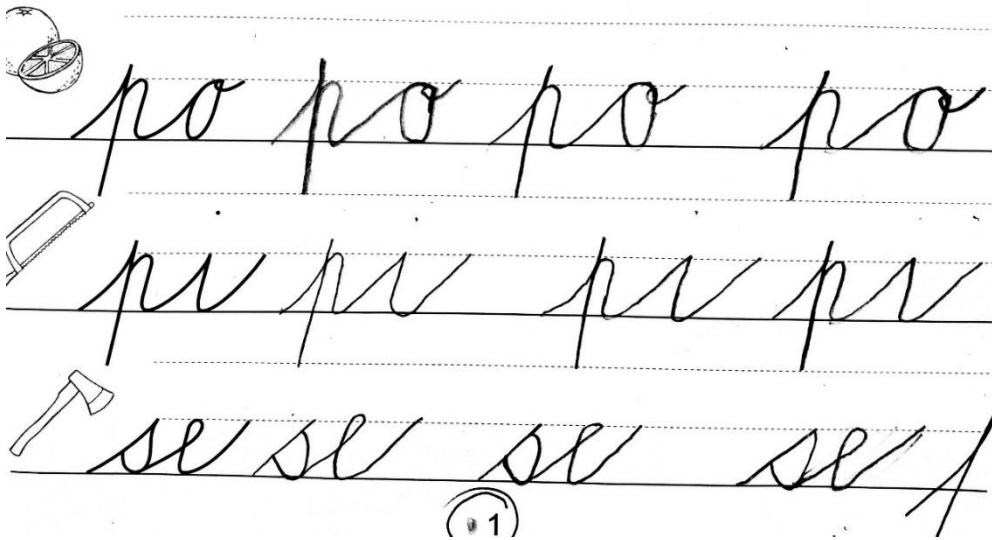 po po po po
pi pi pi pi
se se se
se
1